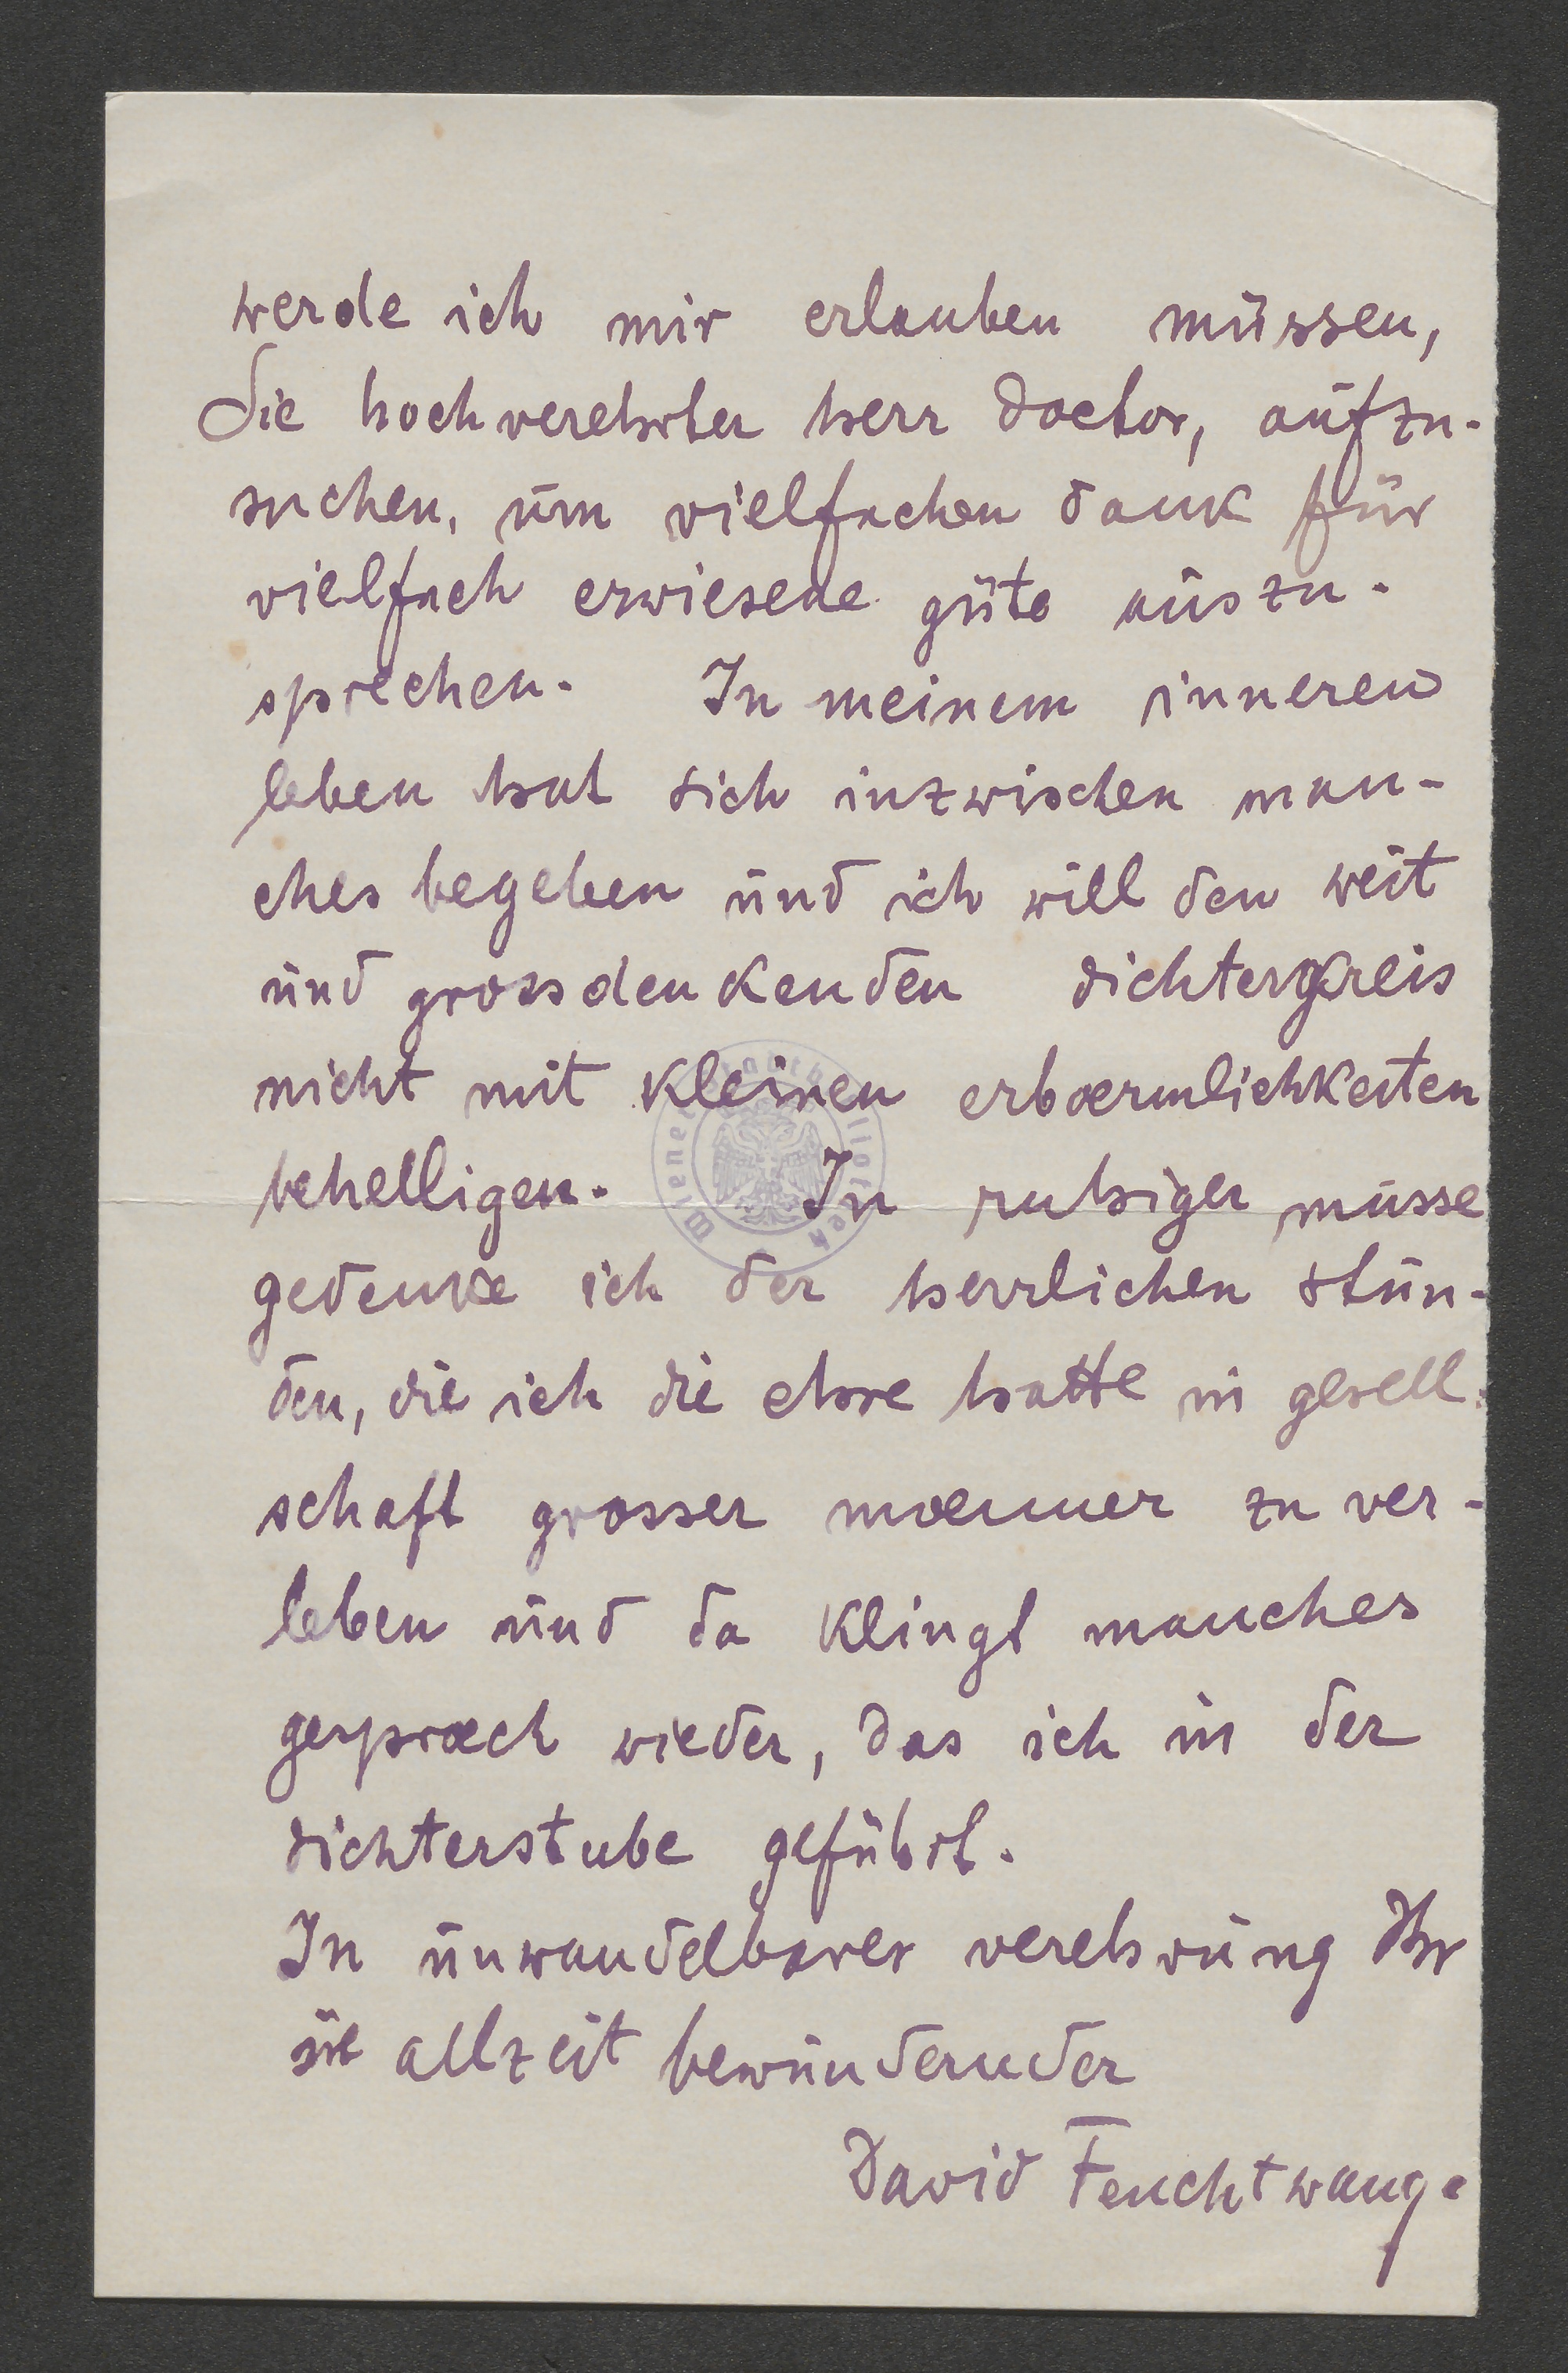 werde ich mir erlauben müssen,
Sie hochverehrter herr doctor, aufzu-
suchen, um vielfachen dank für
vielfach erwiesene güte auszu-
sprechen. In meinem inneren
leben hat sich inzwischen man-
ches begeben und ich will den weit
und grossdenkenden dichtergreis
nicht mit kleinen erbaermlichkeiten
behelligen. In ruhiger musse
gedenke ich der herrlichen stun-
den, die ich die ehre hatte in gesell-
schaft grosser maenner zu ver-
leben und da klingt manches
gespraech wieder, das ich in der
dichterstube geführt.
In unwandelbarer verehrung Ihr
sie allzeit bewundernder
David Feuchtwang.